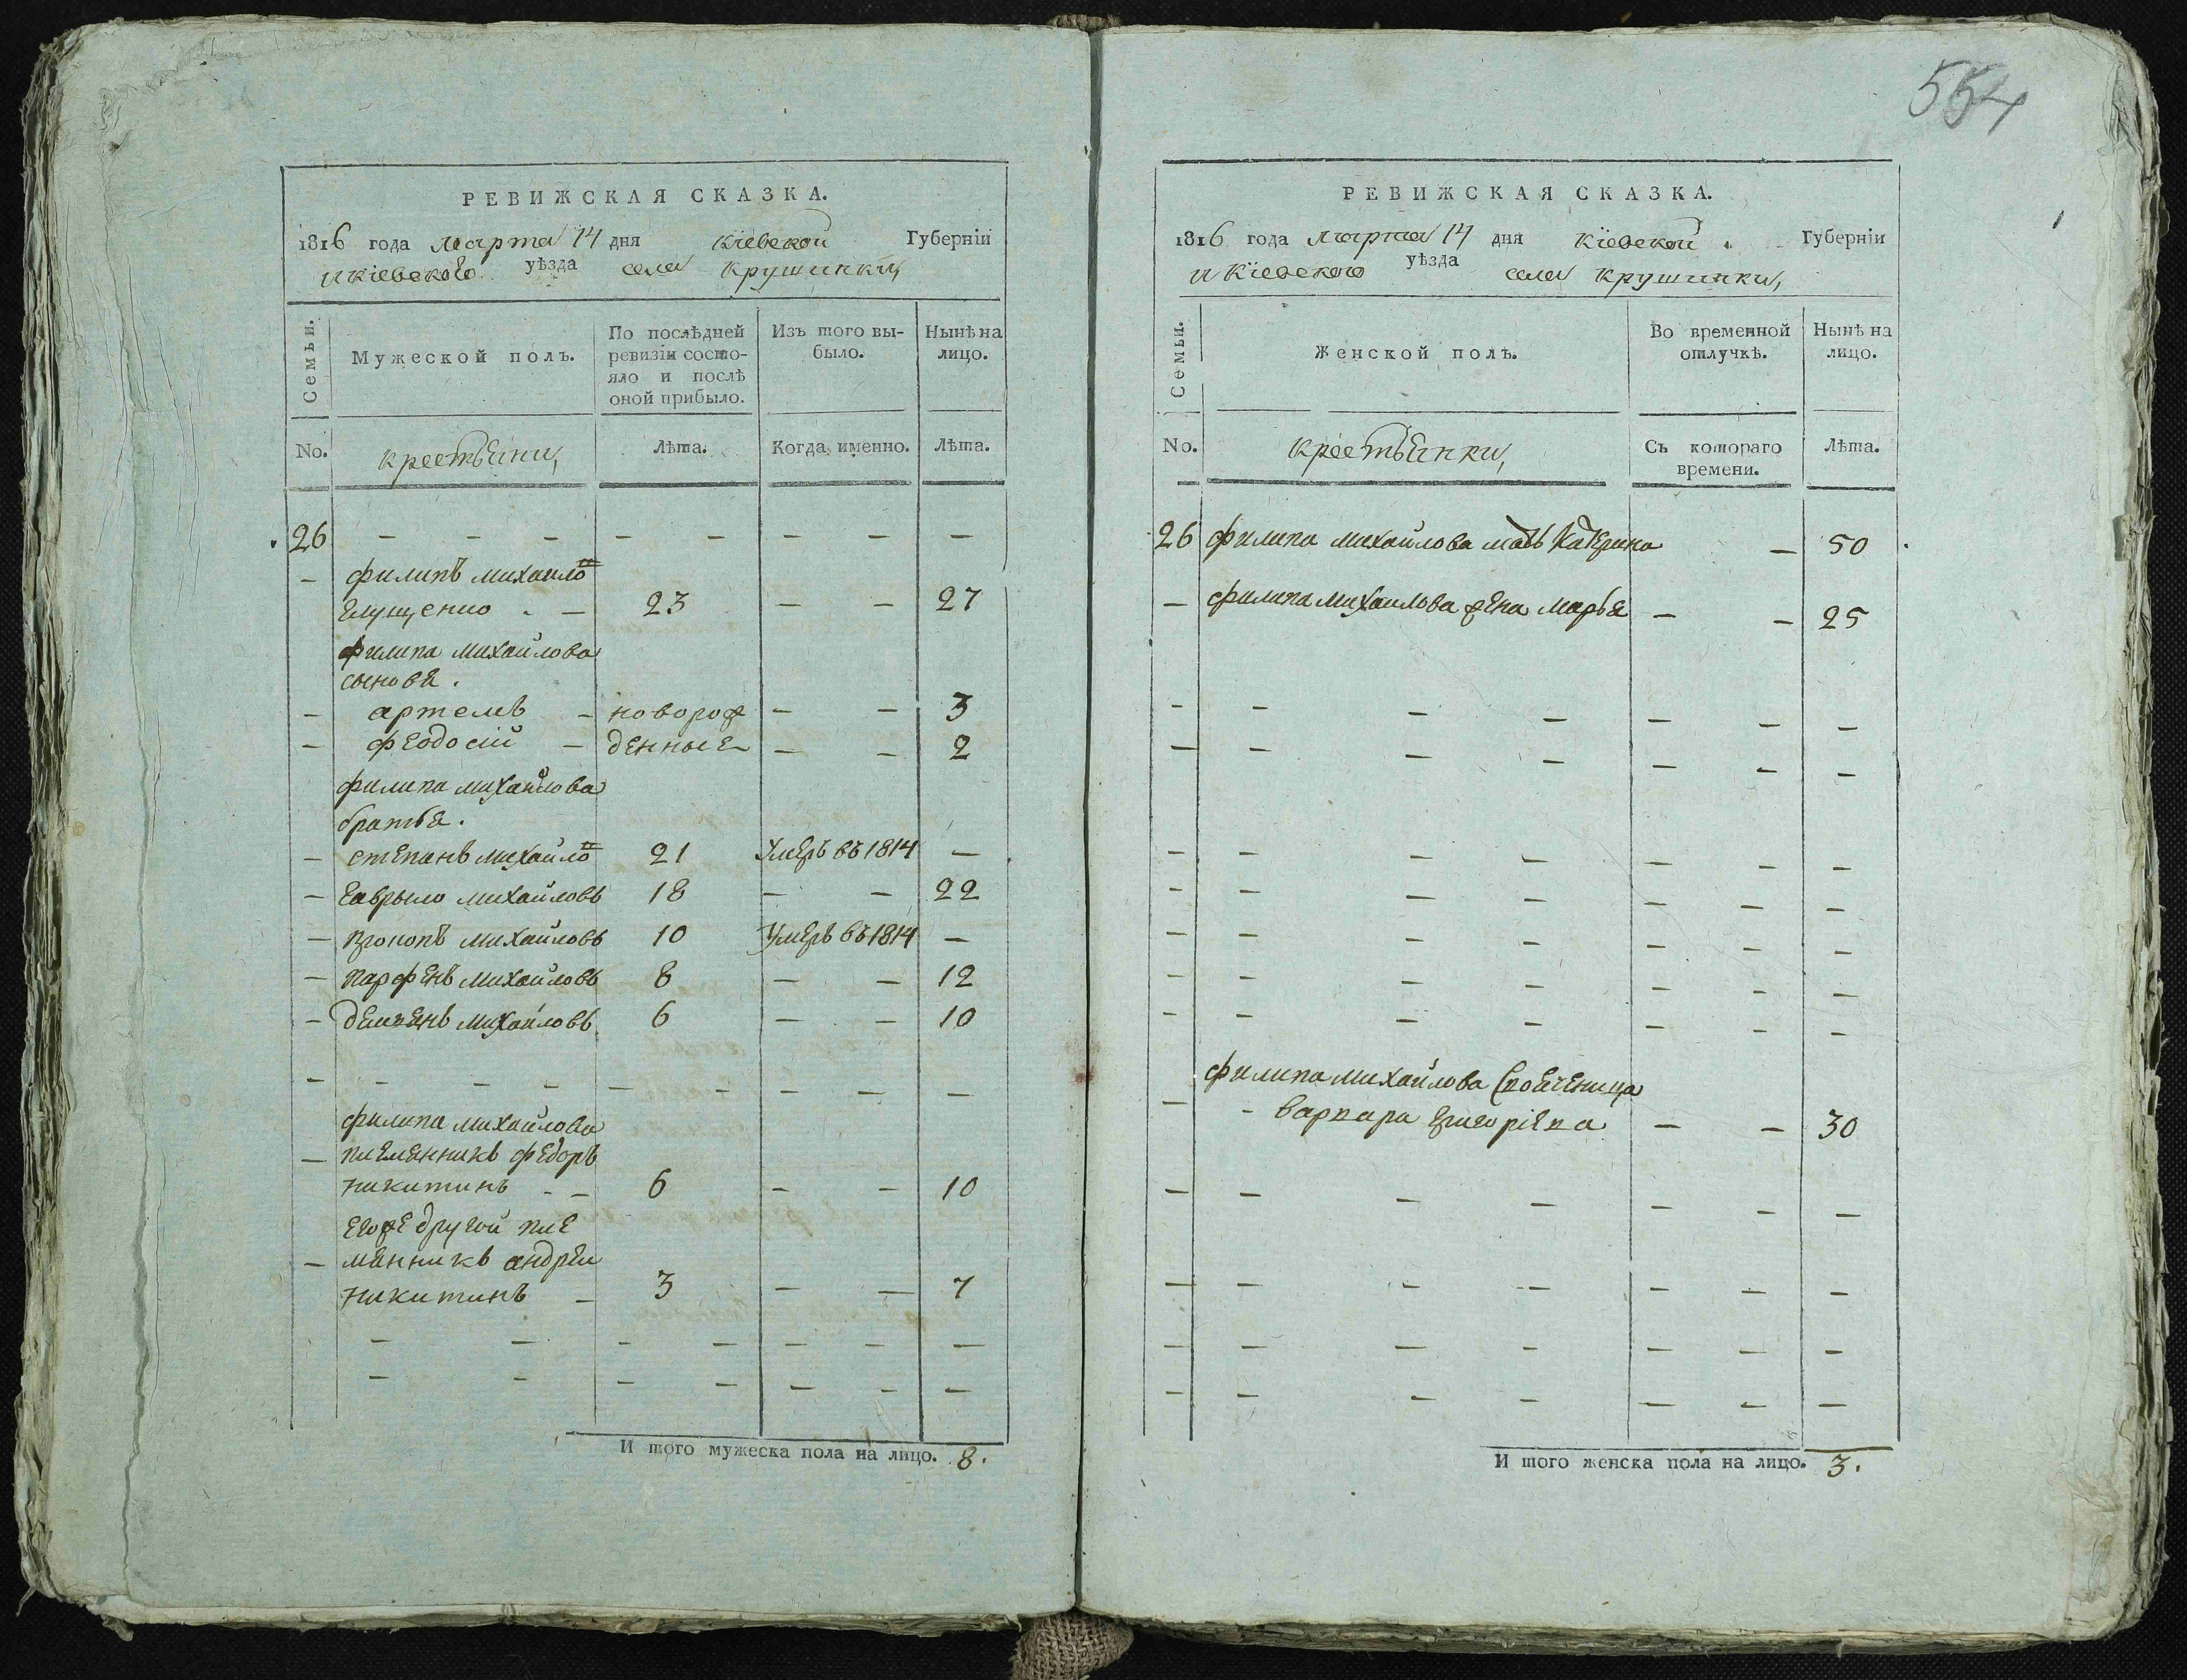 554
РЕВИЖСКАЯ СКАЗКА.
1816 года марта 14 дня Кіевской Губерніи
и Кіевского уѣзда села Крушинки,
Семьи.
Мужеской полъ.
По послѣдней ревизіи состо-
яло и послѣ
оной прибыло.
Изъ того вы-
было.
Нынѣ на
лицо.
No.
крестьяни,
Лѣта.
Когда именно.
Лѣта.
26 – – – – – – – –
– филипъ михайло
23 – – 27
филипа михайлова
сыновя.
– артемъ – новорож – – 3
– феодосій – денные – – 2
филипа михайлова
братья.
– степанъ михайло 21 Умеръ въ 1814 –
– гаврыло михайловъ 18 – – 22
– прокопъ михайловъ 10 Умеръ въ 1814 –
– парфенъ михайловъ 8 – – 12
– демянъ михайловъ 6 – – 10
– – – – – – – – –
филипа михайлова
– племянникъ федоръ
никитинъ – – 6 – – 10
егоже другой пле
– мянникъ андреи
никитинъ – 3 – – 7
– – – – – – –
– – – – – – –
И того мужеска пола на лицо. 8.
РЕВИЖСКАЯ СКАЗКА.
1816 года марта 14 дня Кіевской Губерніи
и Кіевского уѣзда села Крушинки,
Семьи.
Женской полъ.
Во временной
отлучкѣ.
Нынѣ на
лицо.
No.
крестьянки,
Съ котораго
времени.
Лѣта.
26 филипа михайлова мать Катерина – 50
– филипа михайлова жена марья – – 25
– – – – – – –
– – – – – – –
– – – – – – –
– – – – – – –
– – – – – – –
– – – – – – –
– – – – – – –
филипа михайлова
– – варвара – – 30
– – – – – – –
– – – – – – –
– – – – – – –
– – – – – – –
И того женска пола на лицо. 3.